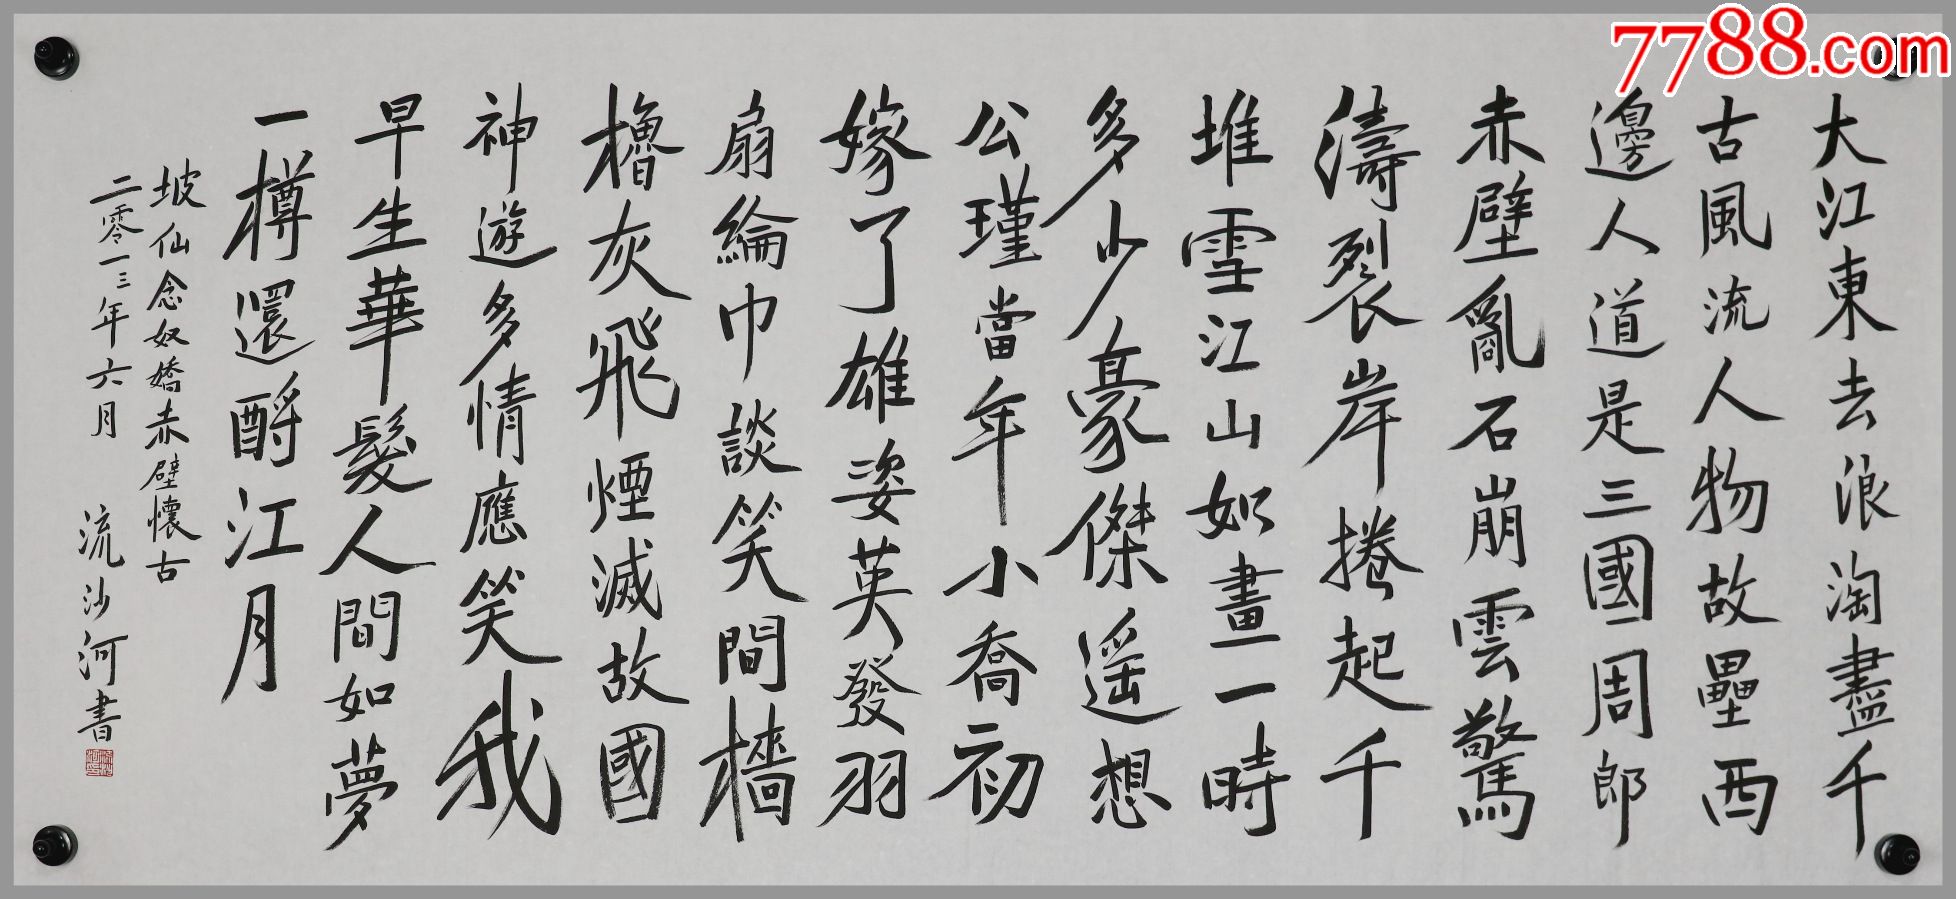 大江東去浪淘盡千
古風流人物故壘西
邊人道是三國周郎
赤壁亂石崩雲驚
濤裂岸捲起千
堆雪江山如畫一時
多少豪傑遥想
公瑾當年小喬初
嫁了雄姿英發羽
扇綸巾談笑間檣
櫓灰飛煙滅故國
神遊多情應笑我
早生華髮人間如夢
一樽還酹江月
坡仙念奴嬌赤壁懷古
二零一三年六月 流沙河書
7788.com